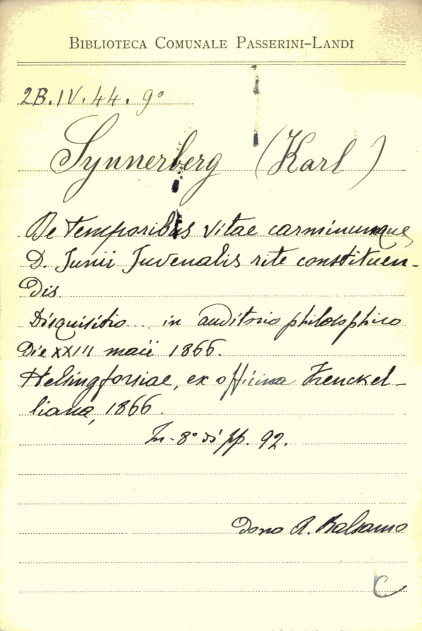 BIBLIOTECA COMUNALE PASSERINI-LANDI
2B.IV.44.9°
Synnerberg (Karl)
De temporibus vitae carminumque
D. Junii Juvenalis rite constituen-
dis
Disquisitio... in auditorio philosophico
Die XXIII maii 1866.
Helsingforsiae, ex officina Frenckel-
liana, 1866.
In-8° di pp. 92.
Dono A. Balsamo
C